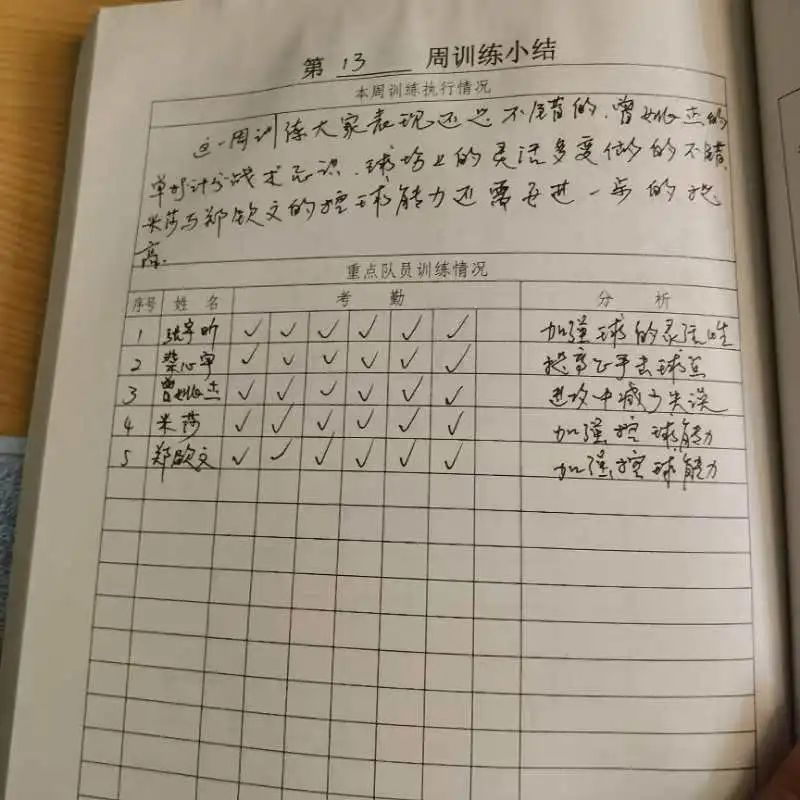 第 13 周训练小结
本周训练执行情况
这一周训练大家表现还是不错的,曾的
单打计分战术意识,球场上的灵活多变做的不错,
米莎与郑钦文的控球能力还需要进一步的提
高.
重点队员训练情况
序号 姓名 考勤 分析
1 张宇昕 ✓ ✓ ✓ ✓ ✓ ✓ 加强球的灵活性
2 ✓ ✓ ✓ ✓ ✓ ✓ 提高正手击球点
3 曾 ✓ ✓ ✓ ✓ ✓ ✓ 进攻中减少失误
4 米莎 ✓ ✓ ✓ ✓ ✓ ✓ 加强控球能力
5 郑钦文 ✓ ✓ ✓ ✓ ✓ ✓ 加强控球能力